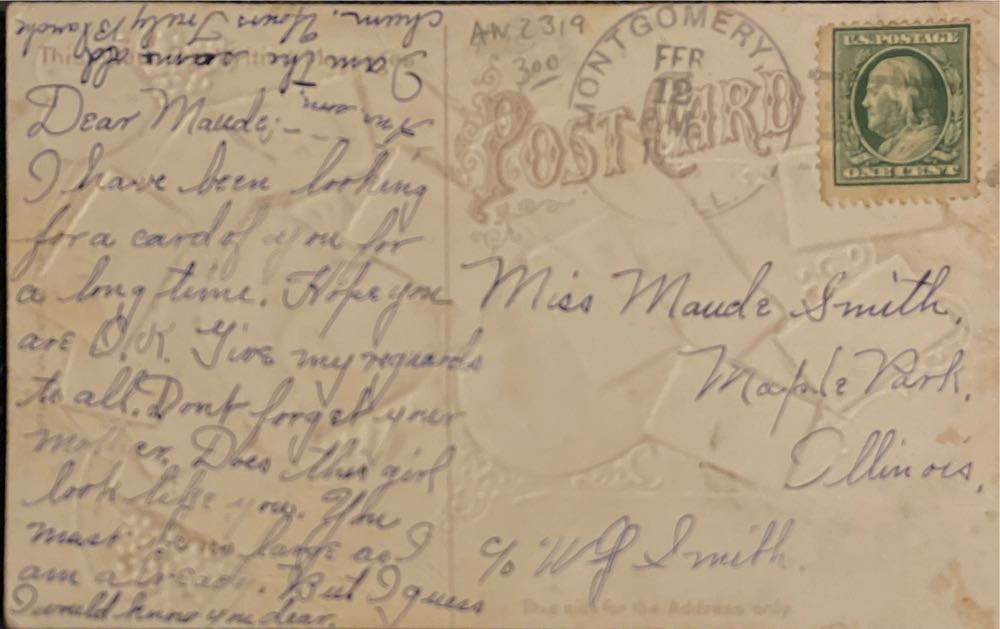 AN 2319
3 00
MONTGOMERY,
FEB
12
ILL.
U.S. POSTAGE
ONE CENT
POST CARD
Dear Maude; -
I have been looking
for a card of you for
a long time. Hope you
are O.K. Give my reguards
to all. Dont forget your
Mother. Does this girl
look like you. You
must be as large as I
am already. But I guess
I would know you dear.
Ans. soon,
I am the same old
chum. Yours Truly Blanche
Miss Maude Smith,
Maple Park,
Illinois,
c/o W J Smith
This side for the Address only